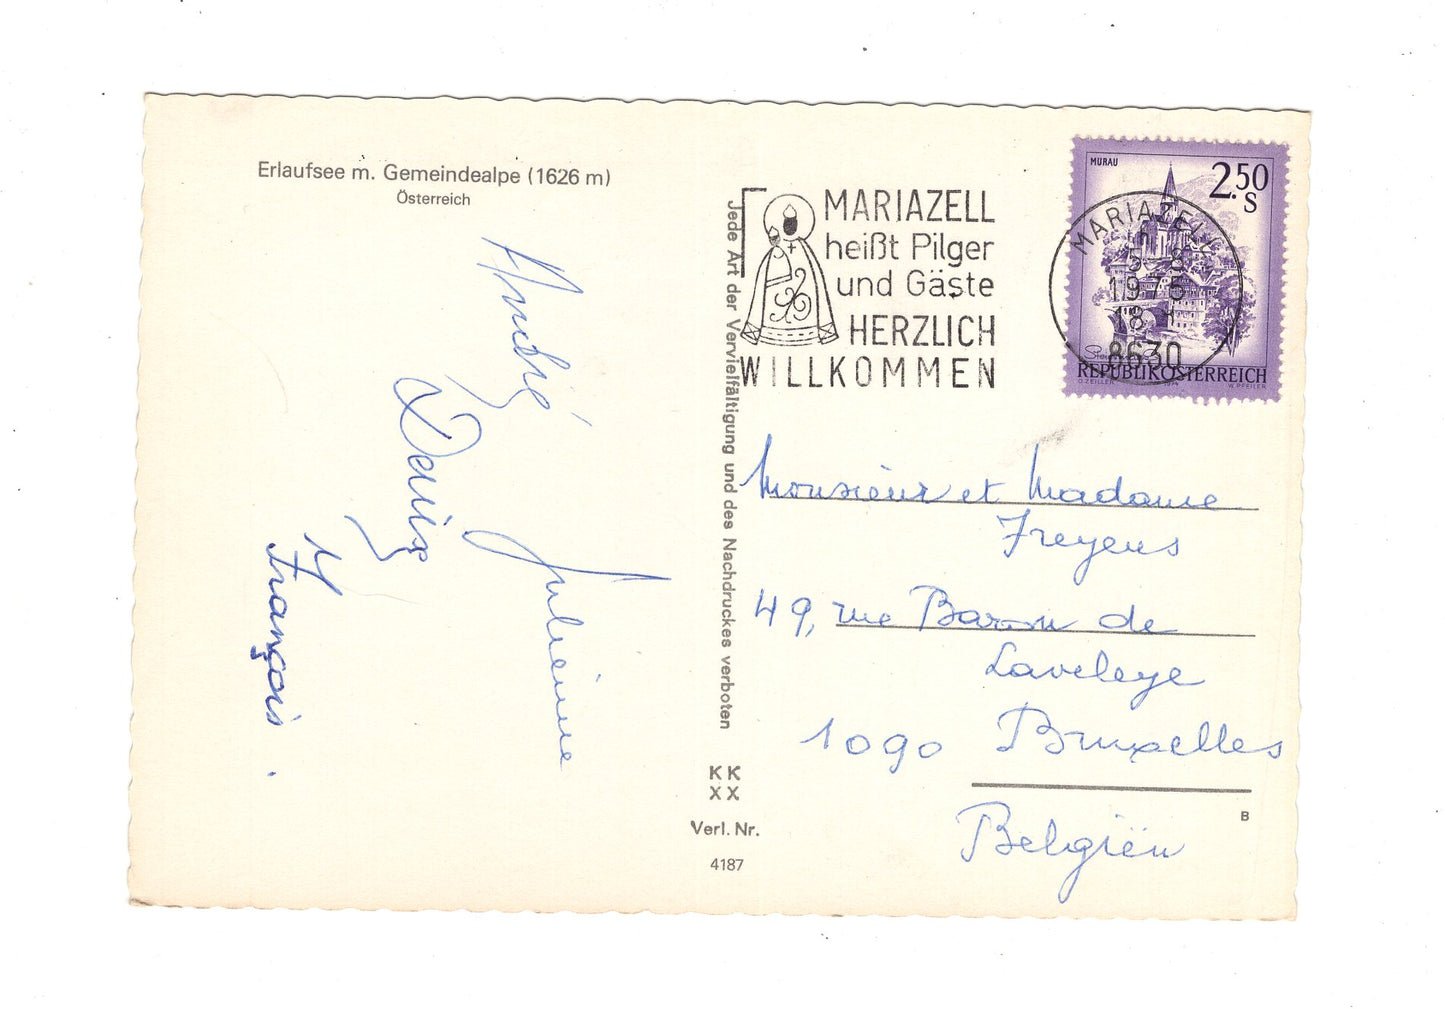 Erlaufsee m. Gemeindealpe (1626 m)
Österreich
André
Denise
Julienne
François.
Jede Art der Vervielfältigung und des Nachdruckes verboten
KK
XX
Verl. Nr.
4187
MARIAZELL
heißt Pilger
und Gäste
HERZLICH
WILLKOMMEN
MARIAZELL
1975
18
8630
MURAU
2.50
S
REPUBLIK ÖSTERREICH
O. ZEILLER
W. PFEILER
Monsieur et Madame
Freyens
49, rue Baron de
Laveleye
1090 Bruxelles
Belgiën
B